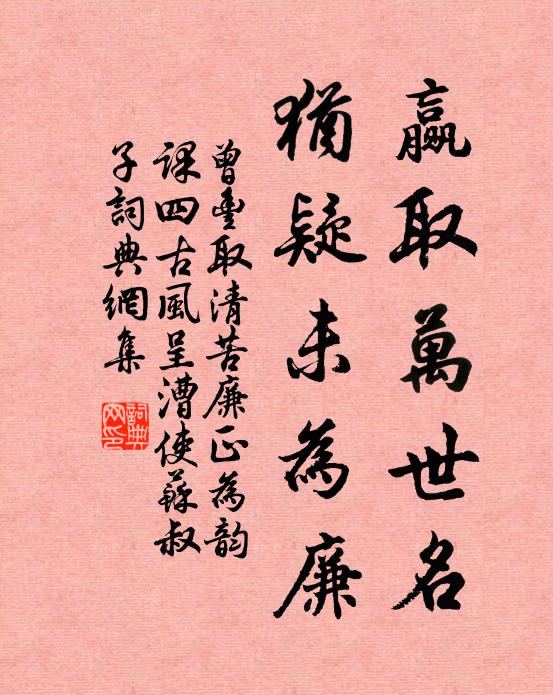 贏取萬世名
猶疑未為廉
曾豐取清苦廉正為韵
課四古風呈漕使蘇叔
子詞典網集
詞典网印